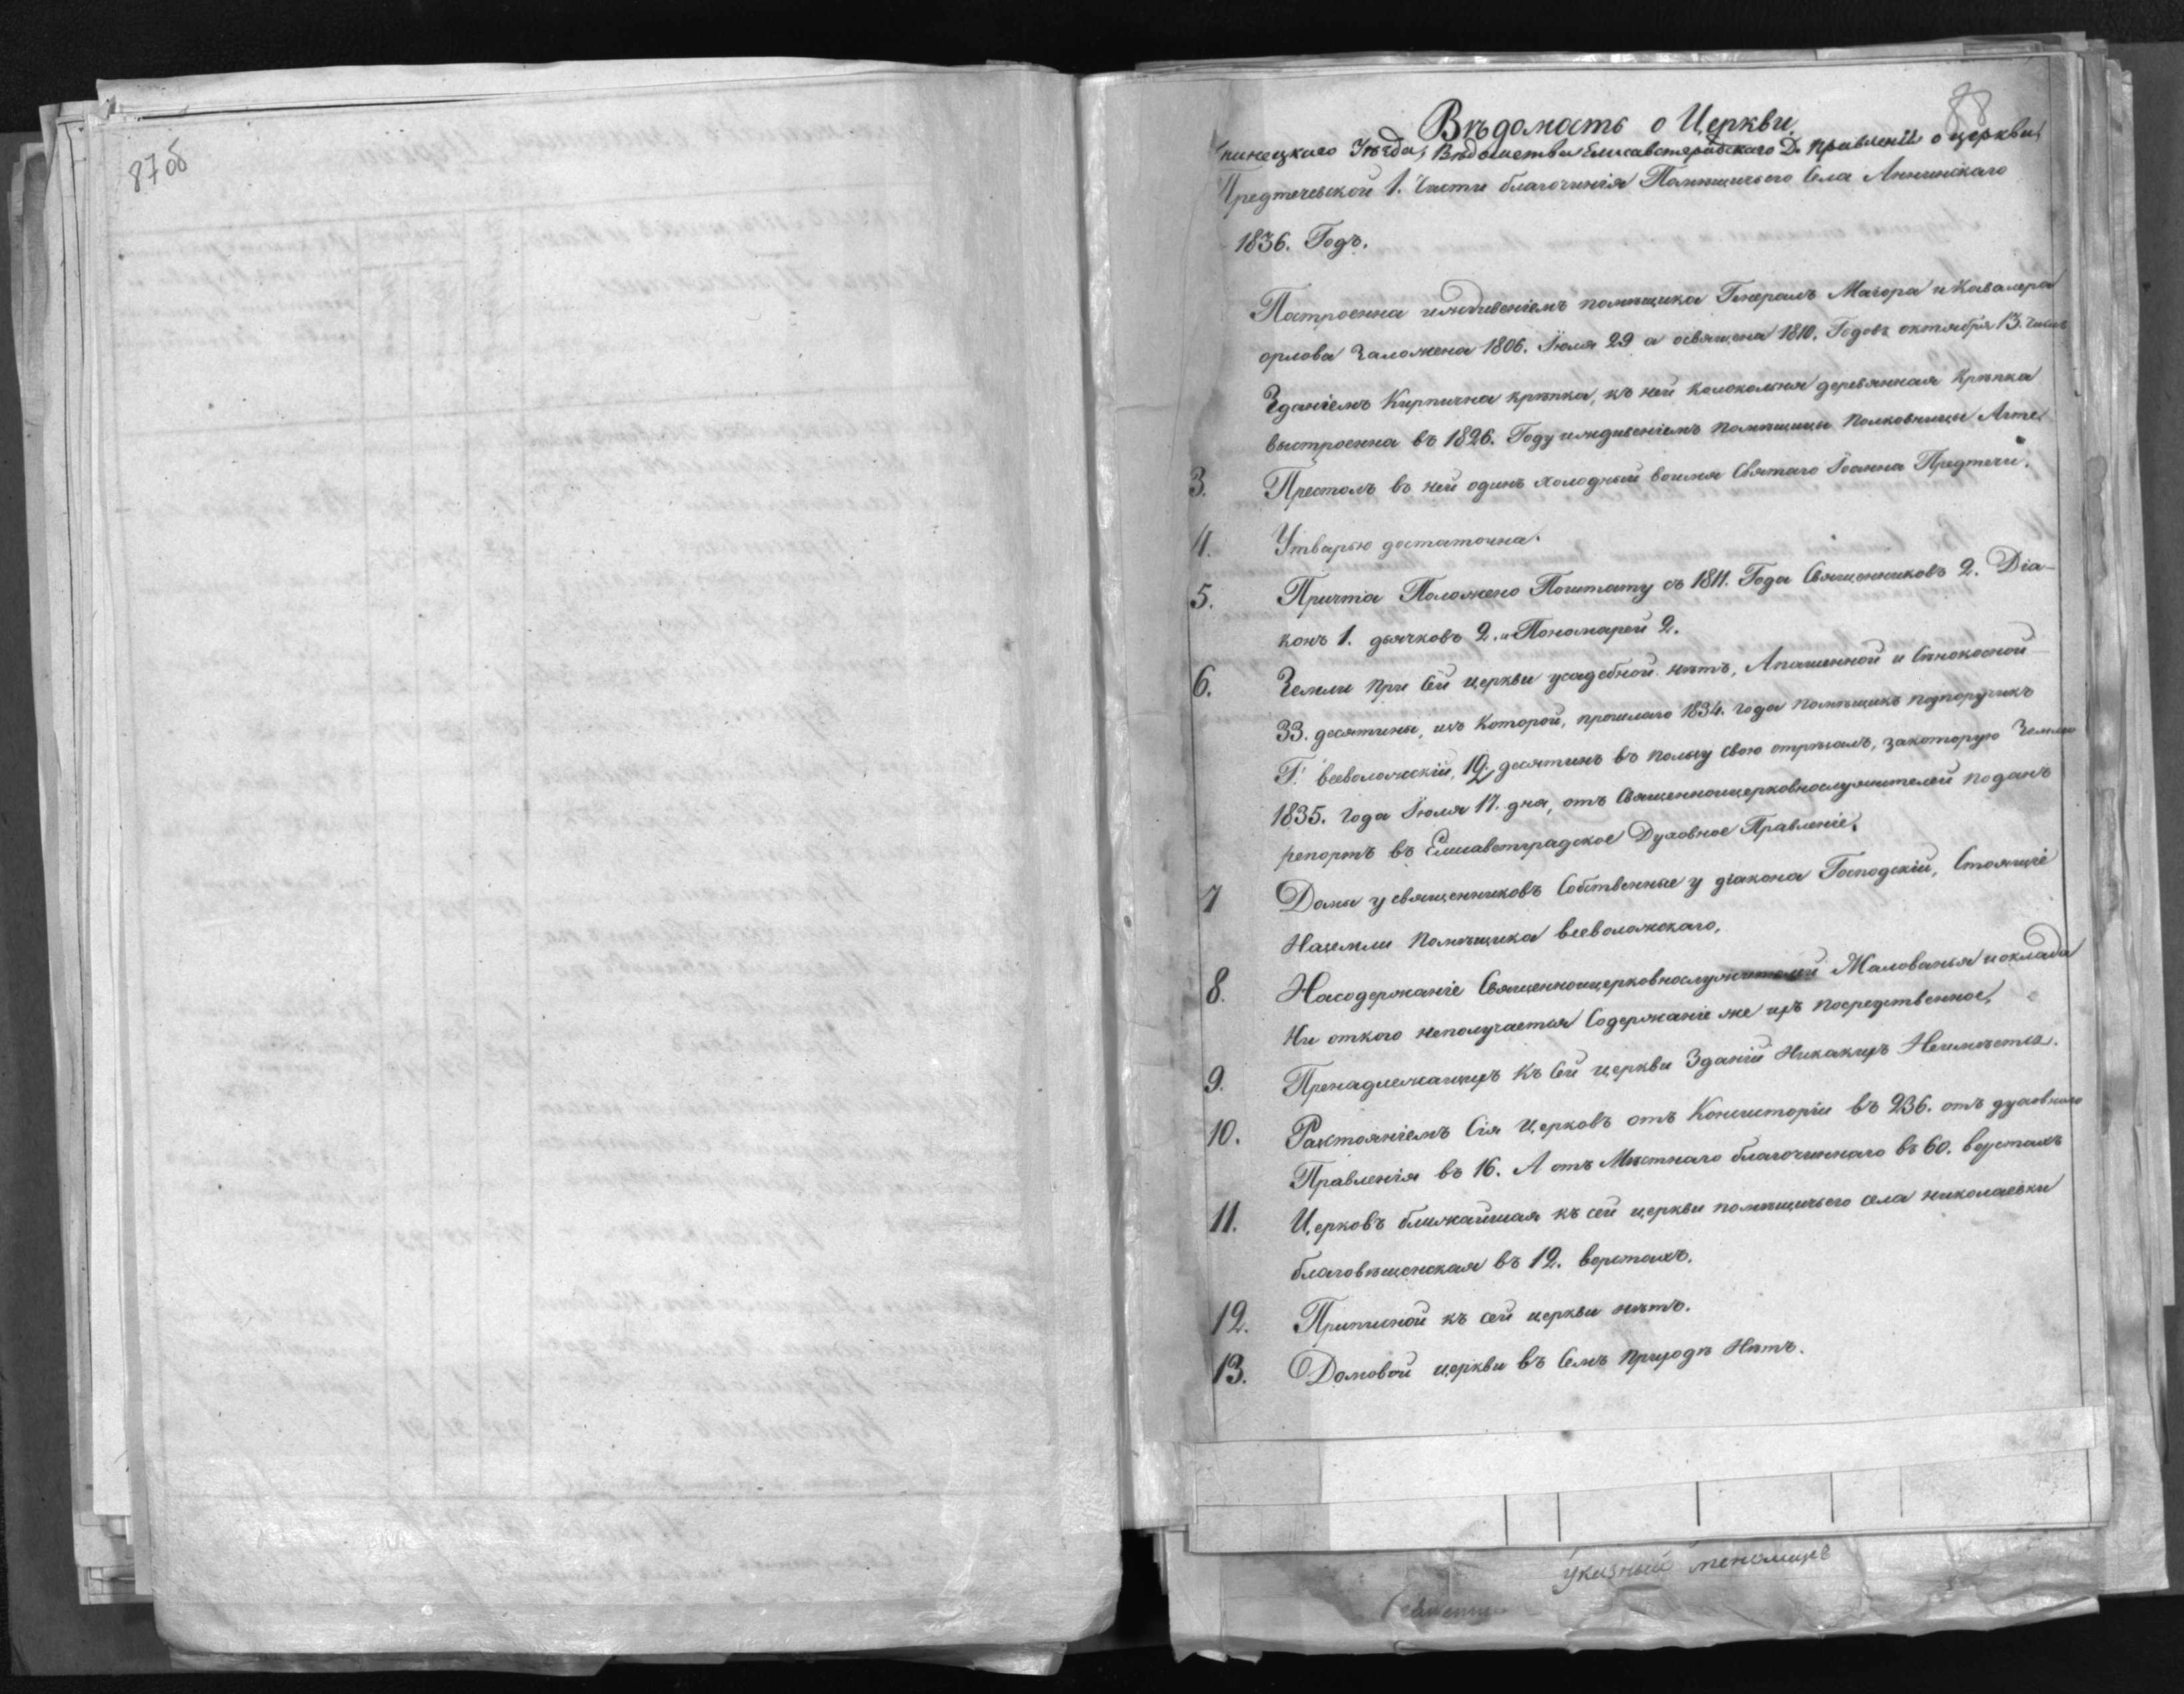 87об
88
Вѣдомость о Церкви
Уѣзда, Вѣдомства Елисаветградскаго Д. Правленія о церкви
Предтечевской 1. Части благочинія Помѣщичьего Села Аннинскаго
1836. Годъ.
Построенна иждивеніемъ помѣщика Генералъ Маіора и Кавалера
орлова Заложена 1806. Іюля 29 а освящена 1810. Годовъ октября 13. числъ
Зданіемъ Кирпична крѣпка, къ ней колокольня деревянная крѣпка
выстроенна въ 1826. Году иждивеніемъ помѣщицы Полковницы
3. Престолъ въ ней одинъ холодный воимя Святаго Іоанна Предтечи.
4. Утварью достаточна.
5. Причта Положено Поштату съ 1811. Года Священниковъ 2. Діа-
конъ 1. дьячковъ 2. и Пономарей 2.
6. Земли при Сей церкви усадебной нѣтъ, Апашенной и Сѣнокосной
33. десятины, изъ которой, прошлаго 1834. года помѣщикъ подпоручикъ
Г. всеволожскій, 19 десятинъ въ пользу свою отрѣзалъ, закоторую Землю
1835. года Іюля 17. дня, отъ Священноицерковнослужителей поданъ
репортъ въ Елисаветградское Духовное Правленіе.
7 Домы у священниковъ Собственные у діакона Господскій, Стоящіе
Наземли Помѣщика всеволожскаго,
8. Насодержаніе Священноицерковнослужителей Жалованья иоклада
Ни откого неполучается Содержаніе же ихъ посредственное,
9. Пренадлежащихъ къ Сей церкви Зданій Никакихъ Неимѣется.
10. Разстояніемъ Сія Церковъ отъ Консисторіи въ 236. отъ духовнаго
Правленія въ 16. А отъ Мѣстнаго благочиннаго въ 60. верстахъ
11. Церковъ ближайшая къ сей церкви помѣщичьего села николаевки
благовѣщенская въ 12. верстахъ.
12. Приписной къ сей церкви нѣтъ.
13. Домовой церкви въ Семъ приходѣ Нѣтъ.
указный